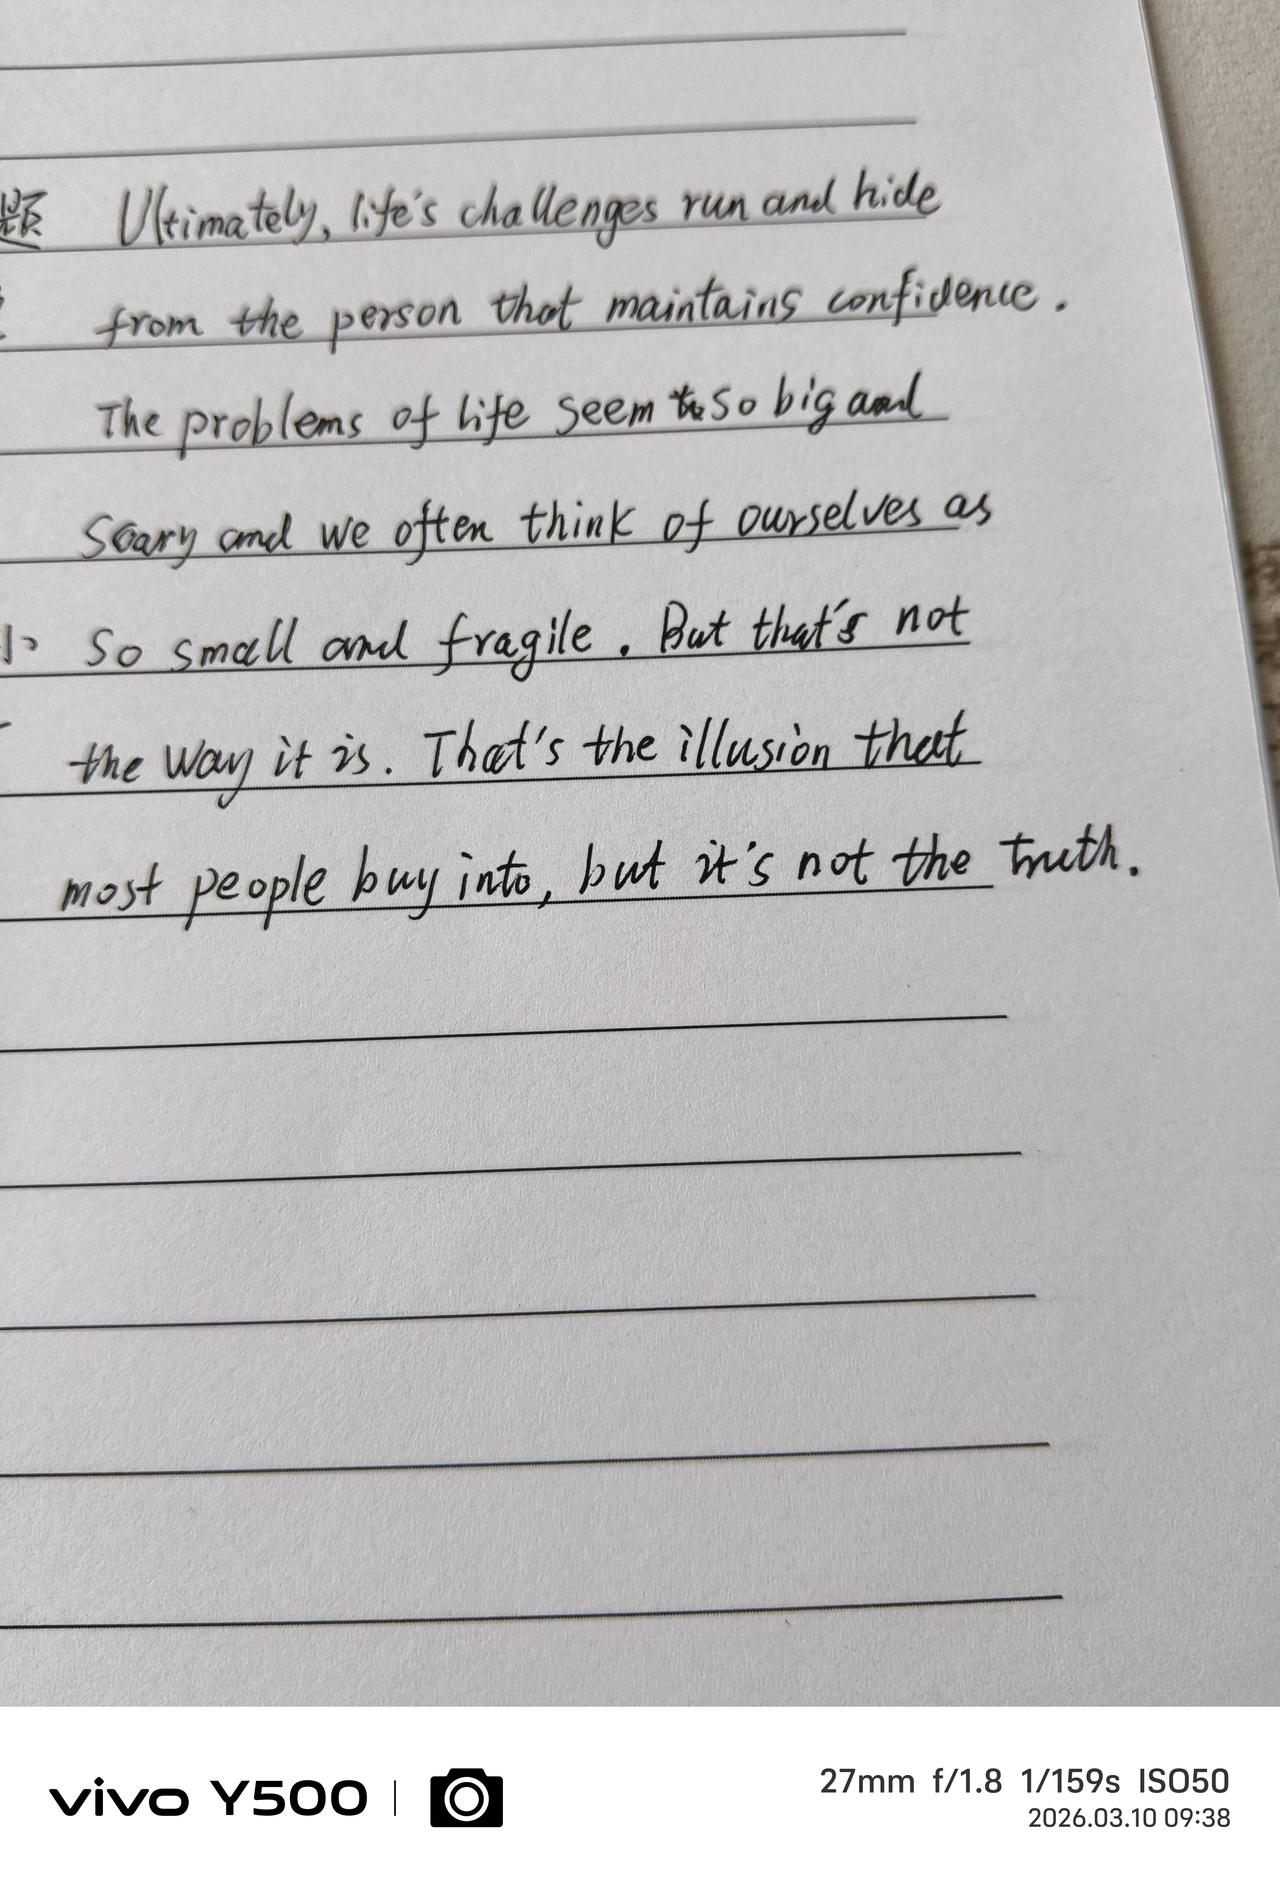 题 Ultimately, life's challenges run and hide
from the person that maintains confidence.
The problems of life seem so big and
Scary and we often think of ourselves as
小 So small and fragile. But that's not
the way it is. That's the illusion that
most people buy into, but it's not the truth.
vivo Y500 27mm f/1.8 1/159s ISO50
2026.03.10 09:38